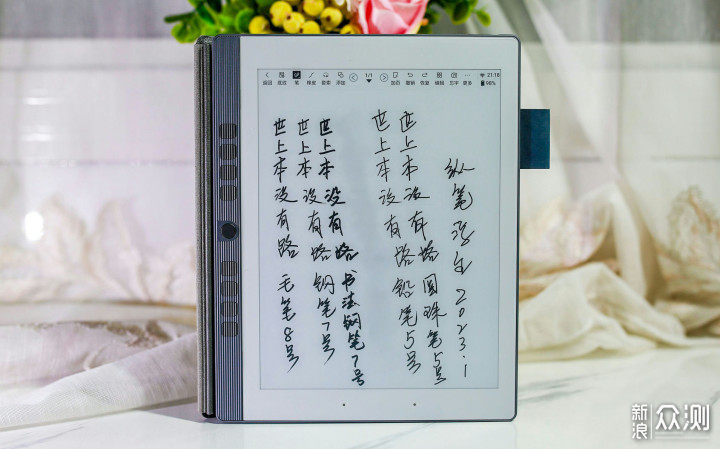 返回 笔 橡皮 套索 添加 1/1 加页 撤销 恢复 编辑 更多 21:18 98%
纵笔浮生 2023.1
世上本没有路 圆珠笔5号
世上本没有路 铅笔5号
世上本没有路 书法钢笔7号
世上本没有路 钢笔7号
世上本没有路 毛笔8号
新浪众测